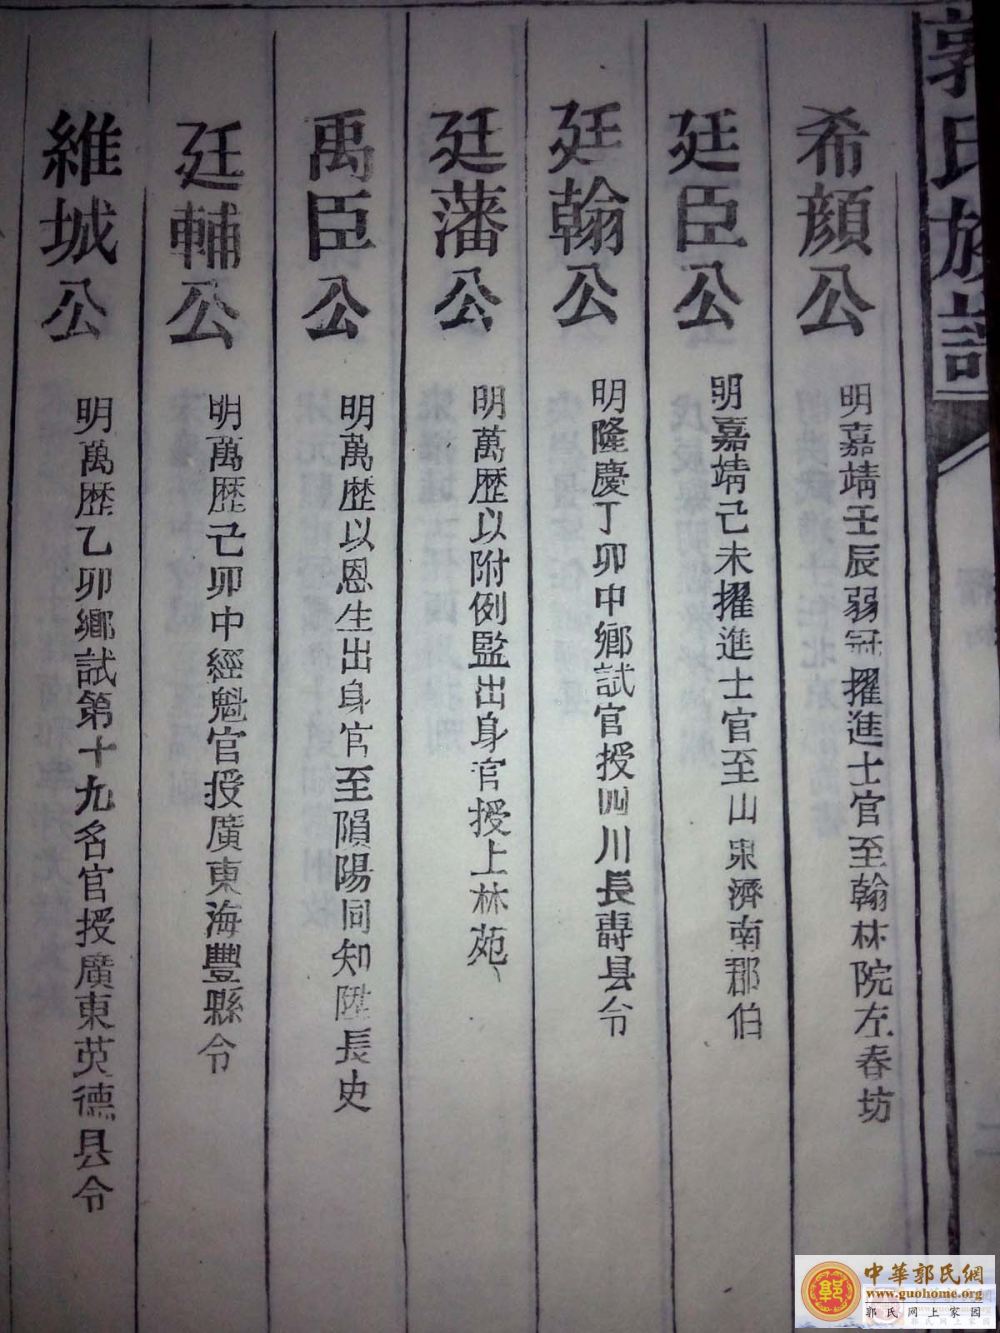 郭氏族譜
希顔公
明嘉靖壬辰弱冠擢進士官至翰林院左春坊
廷臣公
明嘉靖己未擢進士官至山東濟南郡伯
廷翰公
明隆慶丁卯中鄉試官授四川長壽县令
廷藩公
明萬歴以附例監出身官授上林苑
禹臣公
明萬歴以恩生出身官至隕陽同知陞長史
廷輔公
明萬歴己卯中經魁官授廣東海豐縣令
維城公
明萬歴乙卯鄉試第十九名官授廣東英德县令
中華郭氏網
www.guohome.org
郭氏网上家园